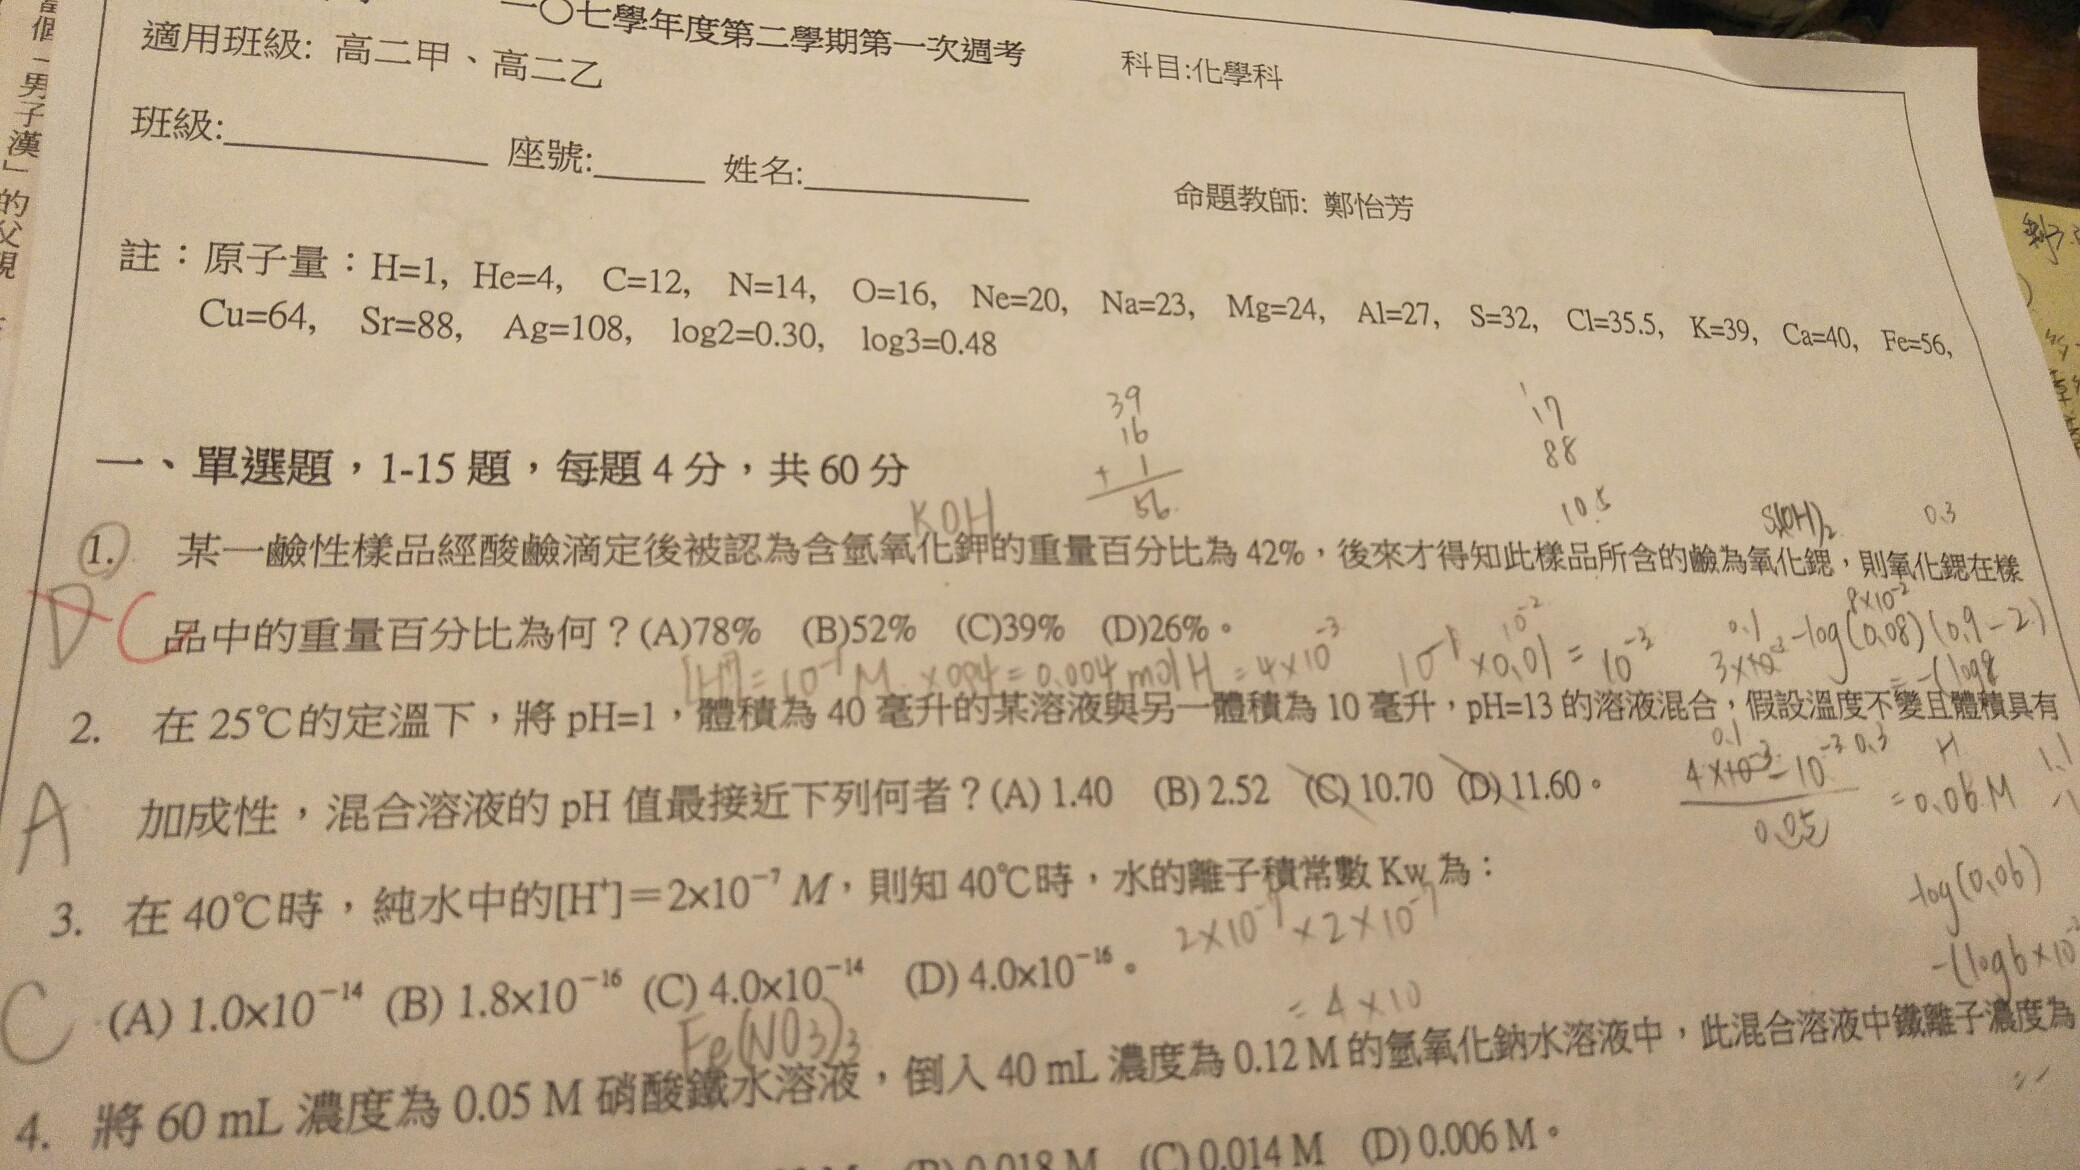 一〇七學年度第二學期第一次週考
科目:化學科
適用班級: 高二甲、高二乙
班級:
座號:
姓名:
命題教師: 鄭怡芳
註：原子量：H=1, He=4, C=12, N=14, O=16, Ne=20, Na=23, Mg=24, Al=27, S=32, Cl=35.5, K=39, Ca=40, Fe=56,
Cu=64, Sr=88, Ag=108, log2=0.30, log3=0.48
39
16
+ 1
56
17
88
10.5
一、單選題，1-15 題，每題 4 分，共 60 分
KOH
0.3
1. 某一鹼性樣品經酸鹼滴定後被認為含氫氧化鉀的重量百分比為 42%，後來才得知此樣品所含的鹼為氧化鍶，則氧化鍶在樣
D C
品中的重量百分比為何？(A)78% (B)52% (C)39% (D)26%。
[H⁺]=10⁻¹M ×0.04=0.004 mol H = 4×10⁻³
10⁻¹×0.01=10⁻³
-log(0.08)(0.9-2)
8×10⁻²
2. 在 25℃的定溫下，將 pH=1，體積為 40 毫升的某溶液與另一體積為 10 毫升，pH=13 的溶液混合，假設溫度不變且體積具有
A
加成性，混合溶液的 pH 值最接近下列何者？(A) 1.40 (B) 2.52 (C) 10.70 (D) 11.60。
4×10⁻³-10⁻³
0.05
=0.06M
-log(0.06)
3. 在 40℃時，純水中的[H⁺]=2×10⁻⁷ M，則知 40℃時，水的離子積常數 Kw 為：
2×10⁻⁷×2×10⁻⁷
=4×10
C
(A) 1.0×10⁻¹⁴ (B) 1.8×10⁻¹⁶ (C) 4.0×10⁻¹⁴ (D) 4.0×10⁻¹⁶。
Fe(NO3)3
4. 將 60 mL 濃度為 0.05 M 硝酸鐵水溶液，倒入 40 mL 濃度為 0.12 M 的氫氧化鈉水溶液中，此混合溶液中鐵離子濃度為
(B) 0.018 M (C) 0.014 M (D) 0.006 M。
男子漢」的父親